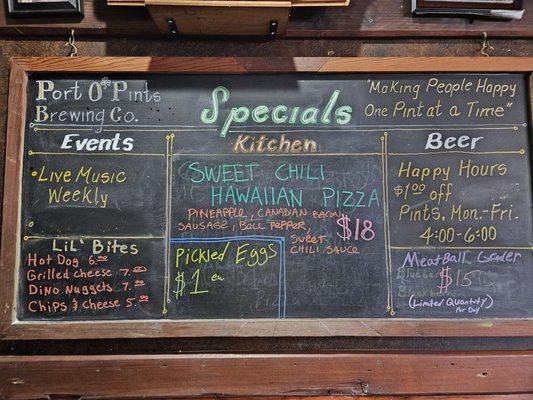 Port O' Pints
Brewing Co.
Specials
"Making People Happy
One Pint at a Time"
Events
Live Music
Weekly
Lil' Bites
Hot Dog 6.00
Grilled Cheese 7.00
Dino Nuggets 7.00
Chips & Cheese 5.00
Kitchen
Sweet Chili
Hawaiian Pizza
Pineapple, Canadian Bacon,
Sausage, Bell Pepper,
Sweet
Chili Sauce
$18
Pickled Eggs
$1 ea
Beer
Happy Hours
$1.00 off
Pints, Mon.-Fri.
4:00-6:00
Meatball Grinder
$15
(Limited Quantity)
Per Day